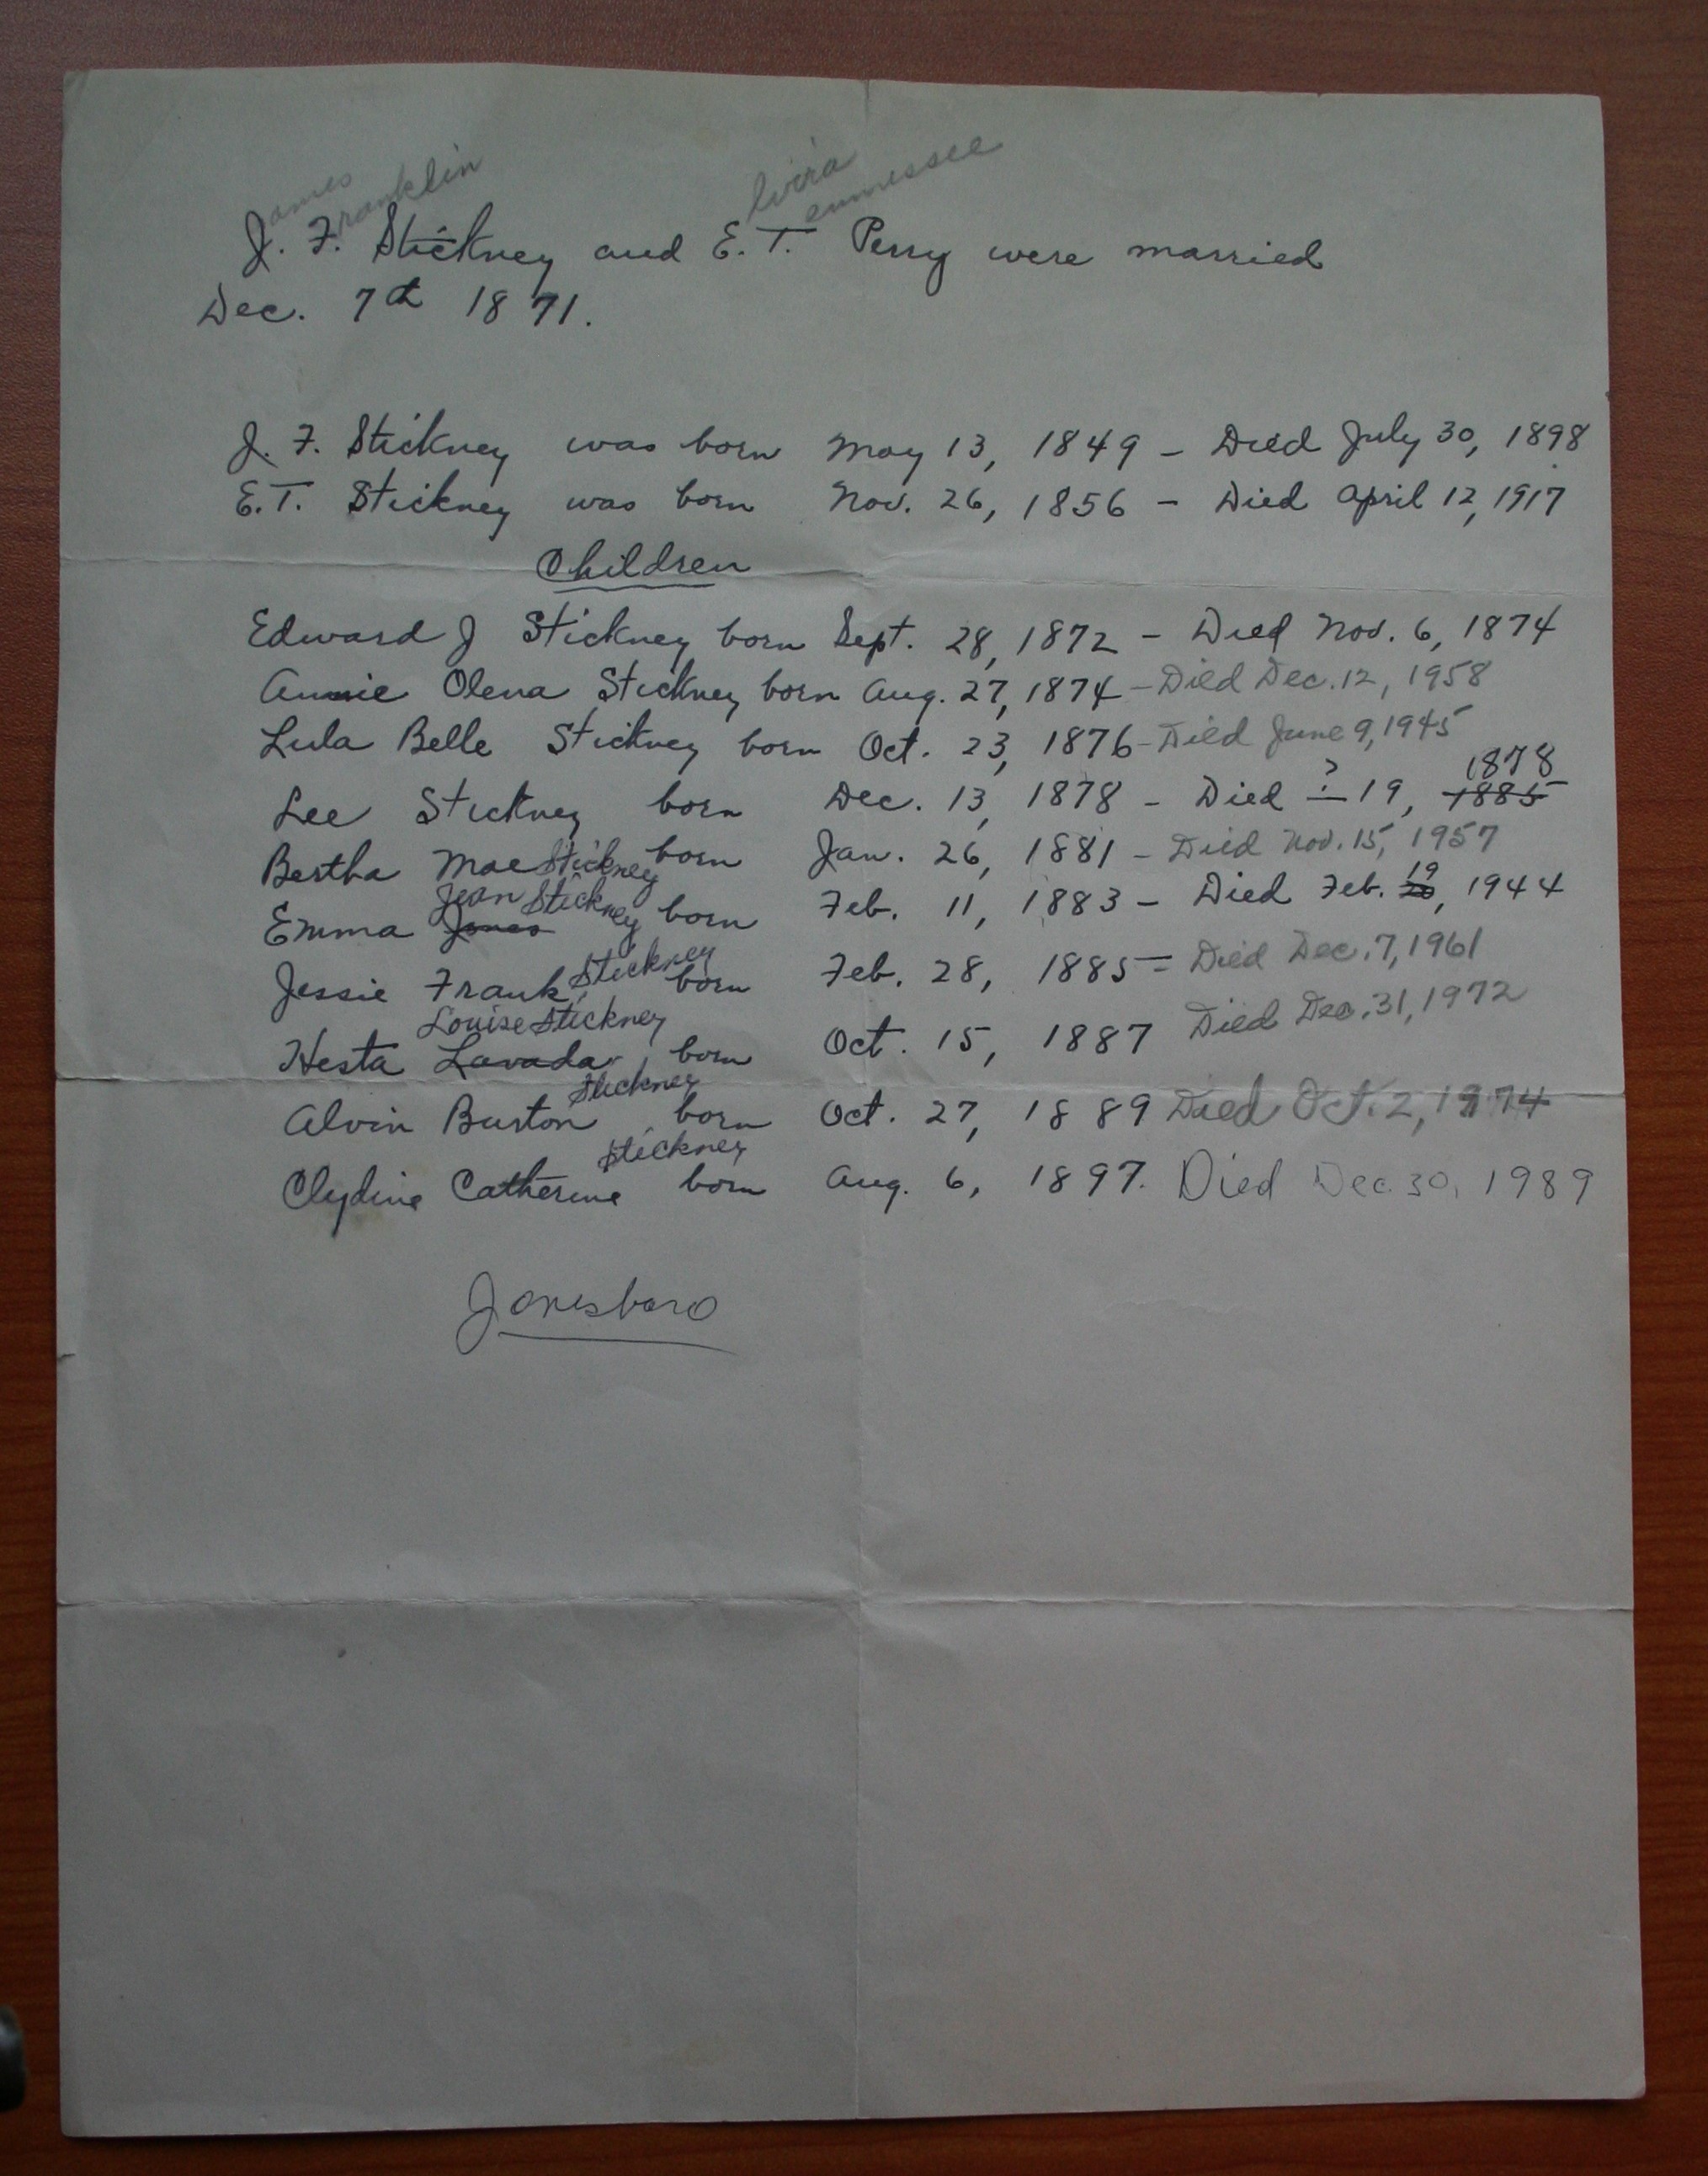 James Franklin lvira ennessee
J. F. Stickney and E. T. Perry were married
Dec. 7th 1871.
J. F. Stickney was born May 13, 1849 - Died July 30, 1898
E.T. Stickney was born Nov. 26, 1856 - Died April 12, 1917
Children
Edward J Stickney born Sept. 28, 1872 - Died Nov. 6, 1874
Annie Olena Stickney born Aug. 27, 1874 - Died Dec. 12, 1958
Lula Belle Stickney born Oct. 23, 1876 - Died June 9, 1945
1878
Lee Stickney born Dec. 13, 1878 - Died ? 19, 1885
Bertha Mae Stickney born Jan. 26, 1881 - Died Nov. 15, 1957
Jean Stickney 19
Emma Jones born Feb. 11, 1883 - Died Feb. 20, 1944
Stickney
Jessie Frank born Feb. 28, 1885 - Died Dec. 7, 1961
Louise Stickney
Hesta Lavada born Oct. 15, 1887 Died Dec. 31, 1972
Stickney
Alvin Burton born Oct. 27, 1889 Died Oct. 2, 1974
Stickney
Clydine Catherine born Aug. 6, 1897. Died Dec. 30, 1989
Jonesboro